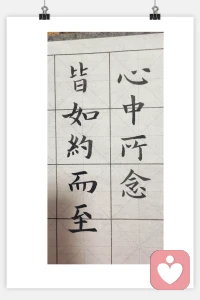 心中所念
皆如約而至